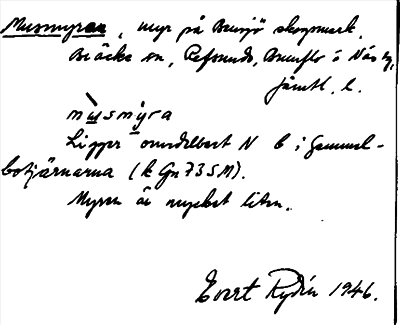 Musmyran, myr på Bensjö skogsmark,
Bräcke sn, Refsunds, Brunflo o Näs tg,
Jämtl. l.
mùsmy̆ra
Ligger omedelbart N b i Gammel-
botjärnarna (k Gn 73 SM).
Myren är mycket liten.
Evert Rydén 1946.